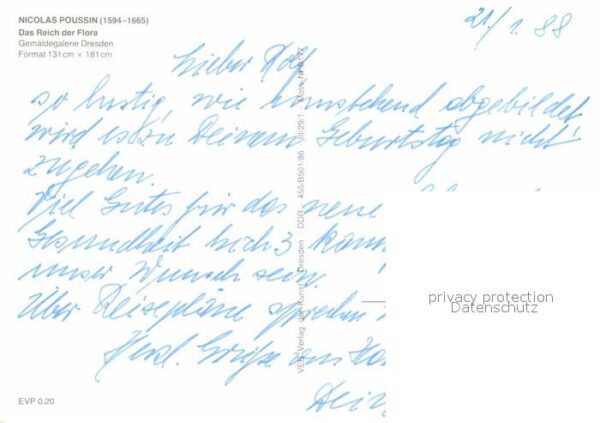 NICOLAS POUSSIN (1594–1665)
Das Reich der Flora
Gemäldegalerie Dresden
Format 131 cm × 181 cm
21/1.88
Lieber Rolf
so lustig, wie umstehend abgebildet
wird es zu Deinem Geburtstag nicht
zugehen.
Viel Gutes für das neue
Gesundheit
unser Wunsch sein.
Über Reisepläne sprechen
Herzl. Grüße aus
Dein
VEB Verlag der Kunst Dresden · DDR · 455/B501-86 VII/29/1
privacy protection
Datenschutz
EVP 0,20